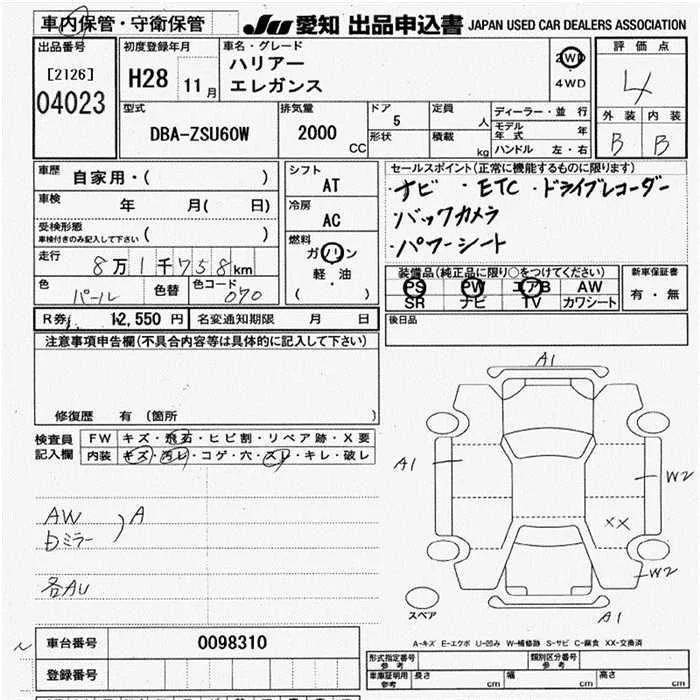 車内保管・守衛保管
JU 愛知 出品申込書 JAPAN USED CAR DEALERS ASSOCIATION
出品番号 [2126] 04023
初度登録年月 H28 11月
車名・グレード ハリアー エレガンス
2WD 4WD
評価点 4
外装 内装
B B
型式 DBA-ZSU60W
排気量 2000 CC
ドア 5
形状
定員 人
積載 kg
ディーラー・並行
モデル年式 年
ハンドル 左・右
車歴 自家用・( )
車検 年 月( 日)
受検形態 車検付きのみ記入して下さい ( )
走行 8万1千758km
色 パール 色替 色コード 070
シフト AT
冷房 AC
燃料 ガソリン 軽・油 ( )
セールスポイント(正常に機能するものに限ります)
・ナビ ・ETC ・ドライブレコーダー
・バックカメラ
・パワーシート
装備品(純正品に限り○をつけてください)
PS PW エアB AW
SR ナビ TV カワシート
新車保証書 有・無
R券 12,550円 名変通知期限 月 日
後日品
注意事項申告欄(不具合内容等は具体的に記入して下さい)
修復歴 有 (箇所 )
検査員記入欄
FW キズ・飛石・ヒビ割・リペア跡・X要
内装 キズ・汚レ・コゲ・穴・スレ・キレ・破レ
AW
ドミラー ) A
各AU
A1
A1
W2
XX
W2
A1
スペア
A-キズ E-エクボ U-凹み W-補修跡 S-サビ C-腐食 XX-交換済
車台番号 0098310
登録番号
形式指定番号 参考
類別区分番号 参考
車庫証明用 参考 長さ cm 幅 cm 高さ cm